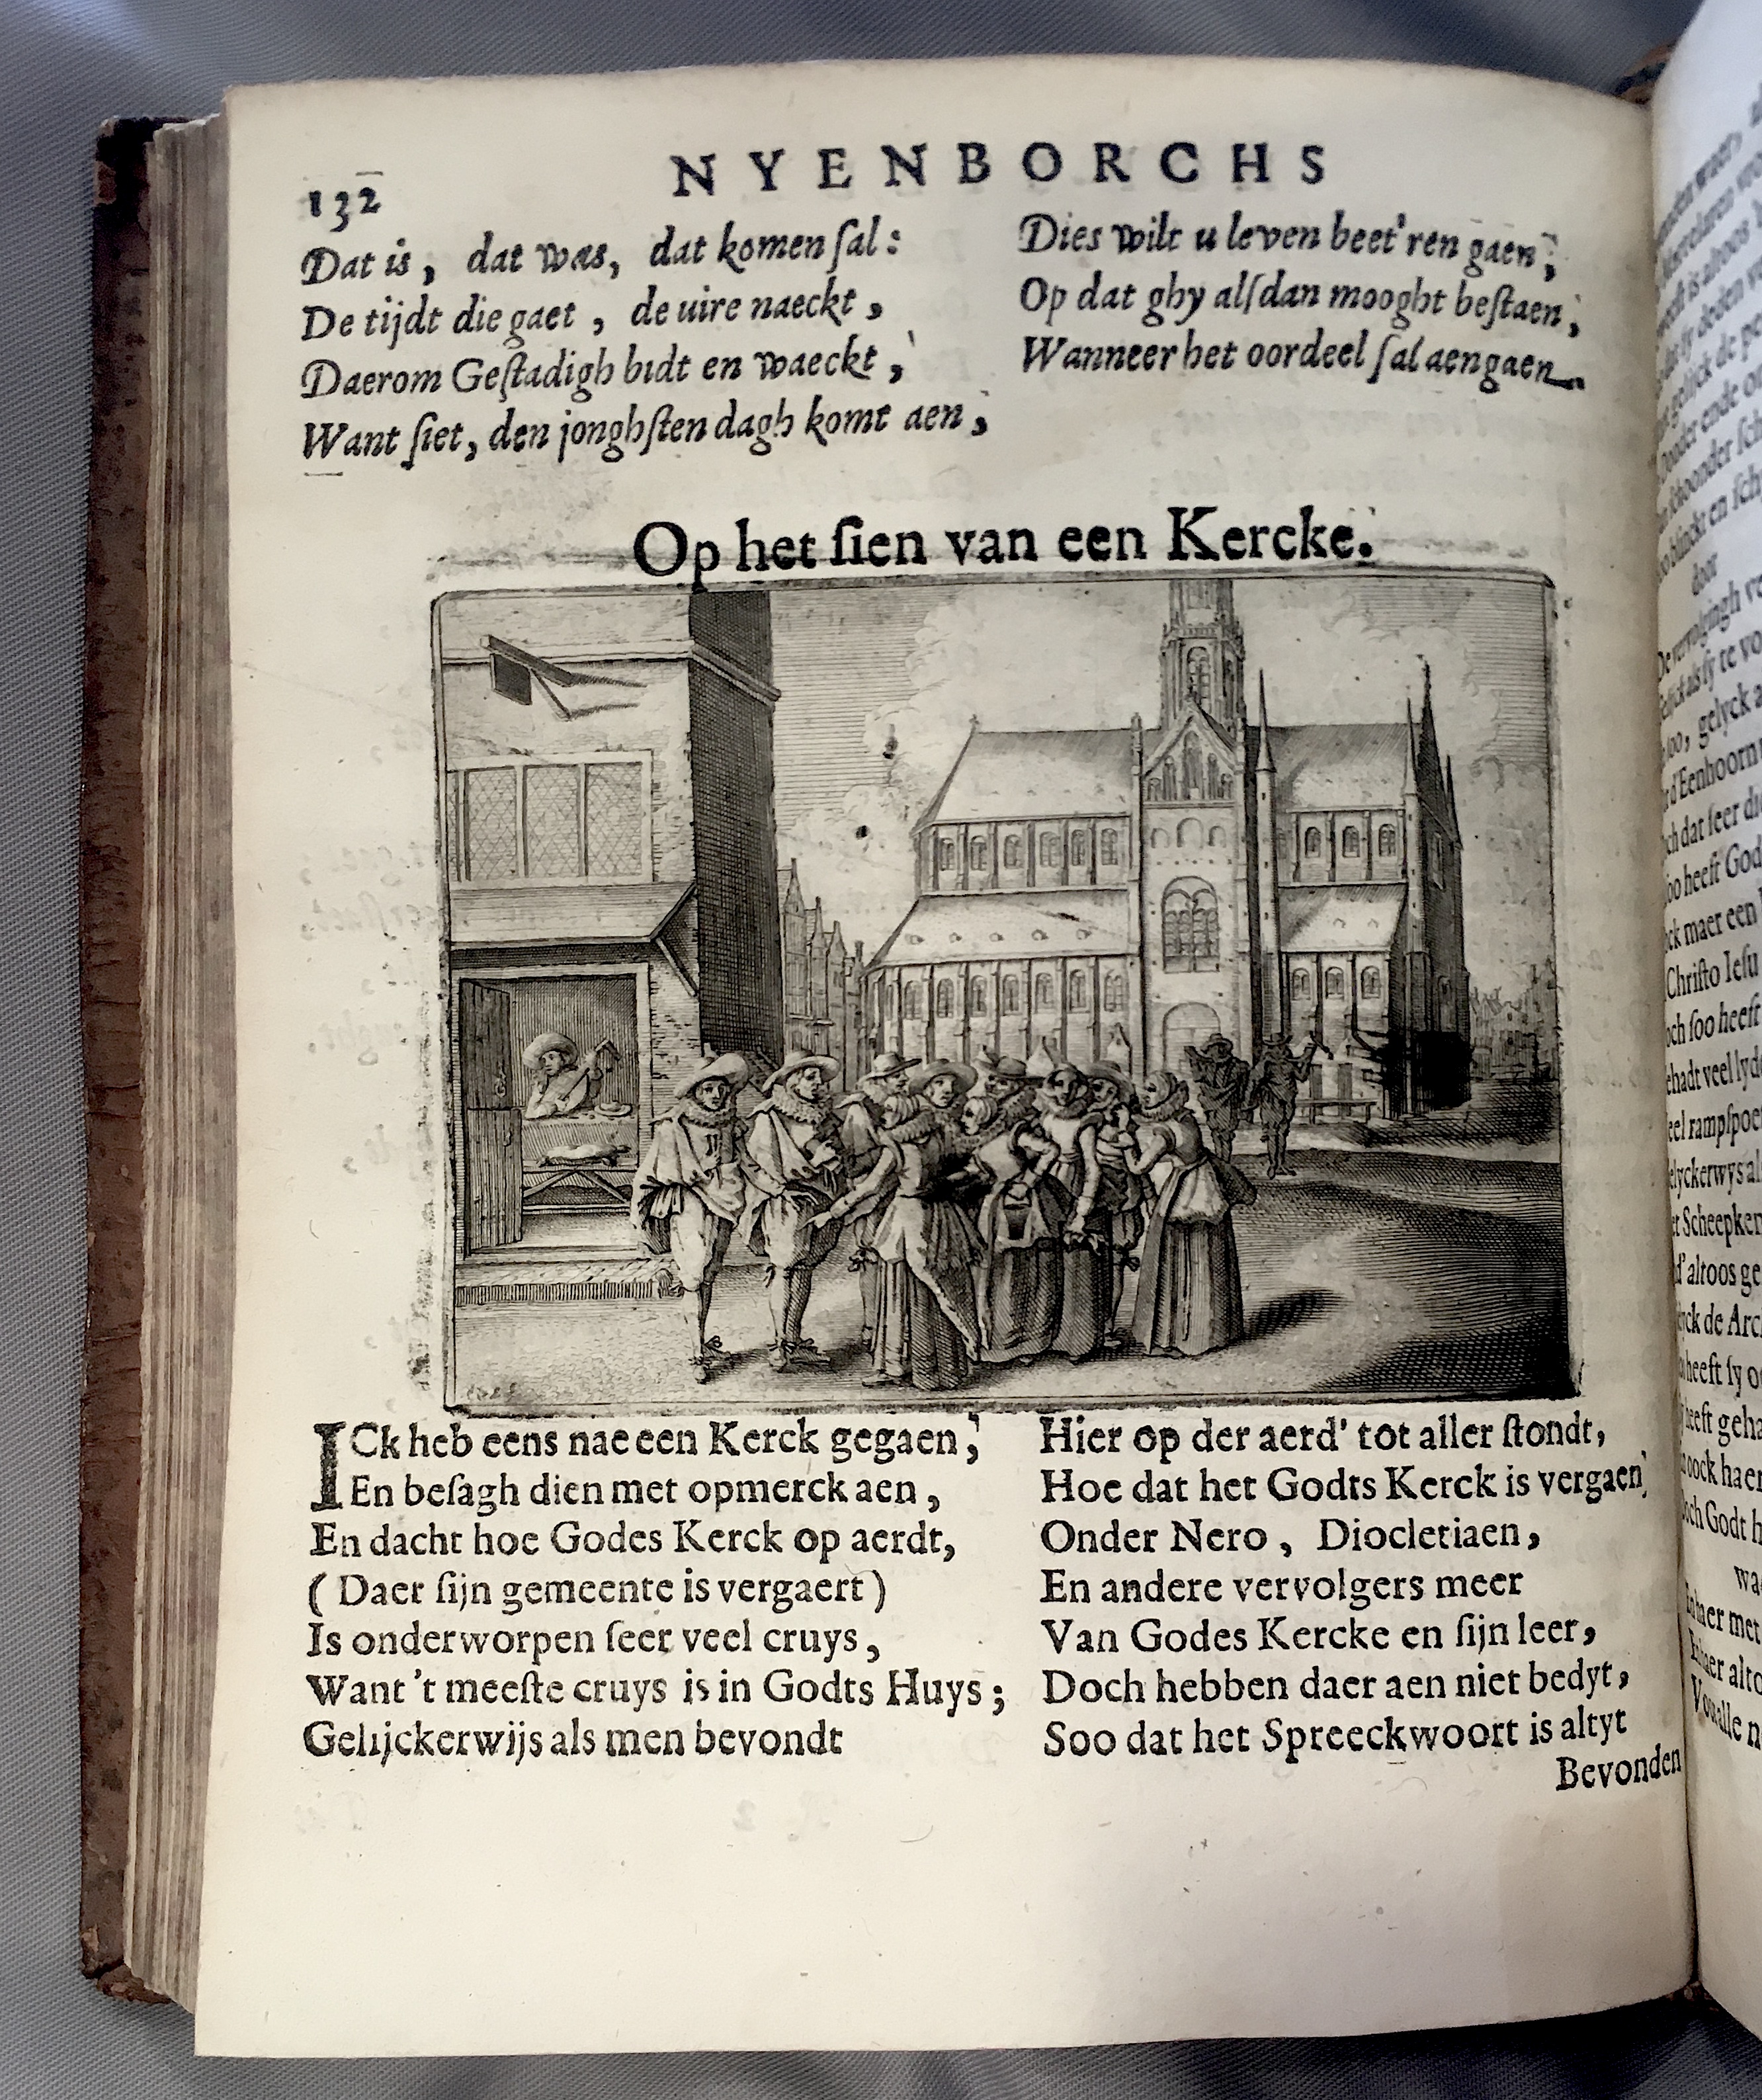 132
NYENBORCHS
Dat is, dat was, dat komen ſal:
De tijdt die gaet, de uire naeckt,
Daerom Geſtadigh bidt en waeckt,
Want ſiet, den jonghſten dagh komt aen,
Dies wilt u leven beet'ren gaen,
Op dat ghy alſdan mooght beſtaen,
Wanneer het oordeel ſal aengaen.
Op het ſien van een Kercke.
ICk heb eens nae een Kerck gegaen,
En beſagh dien met opmerck aen,
En dacht hoe Godes Kerck op aerdt,
(Daer ſijn gemeente is vergaert)
Is onderworpen ſeer veel cruys,
Want 't meeſte cruys is in Godts Huys;
Gelijckerwijs als men bevondt
Hier op der aerd' tot aller ſtondt,
Hoe dat het Godts Kerck is vergaen,
Onder Nero, Diocletiaen,
En andere vervolgers meer
Van Godes Kercke en ſijn leer,
Doch hebben daer aen niet bedyt,
Soo dat het Spreeckwoort is altyt
Bevonden
door
De vervolgingh
gelyck
d'Eenhoorn
och dat ſeer
ſoo heeft God
maer een
Chriſto Ieſu
och ſoo heeft
veel
Scheepken
d'altoos
de Arc
heeft ſy
heeft
oock haer
Doch Godt